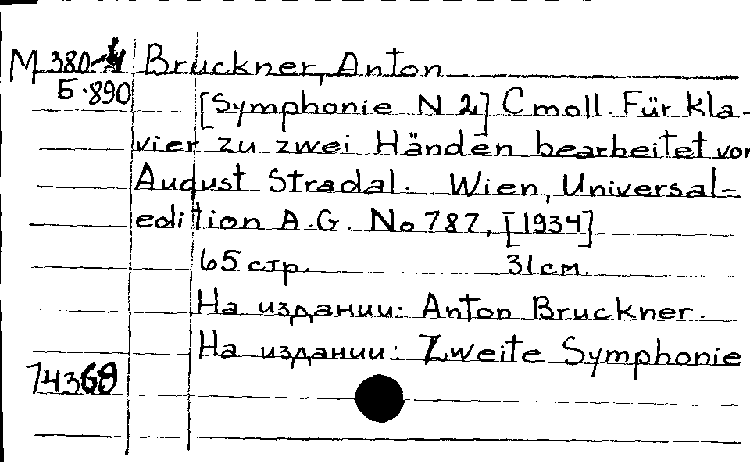 M 380-4 Bruckner, Anton
Б.890
[Symphonie N 2] C moll. Für Kla-
vier zu zwei Händen bearbeitet von
August Stradal. Wien, Universal-
edition A.G. No 787, [1934]
65 стр. 31 см.
На издании: Anton Bruckner.
На издании: Zweite Symphonie
74368